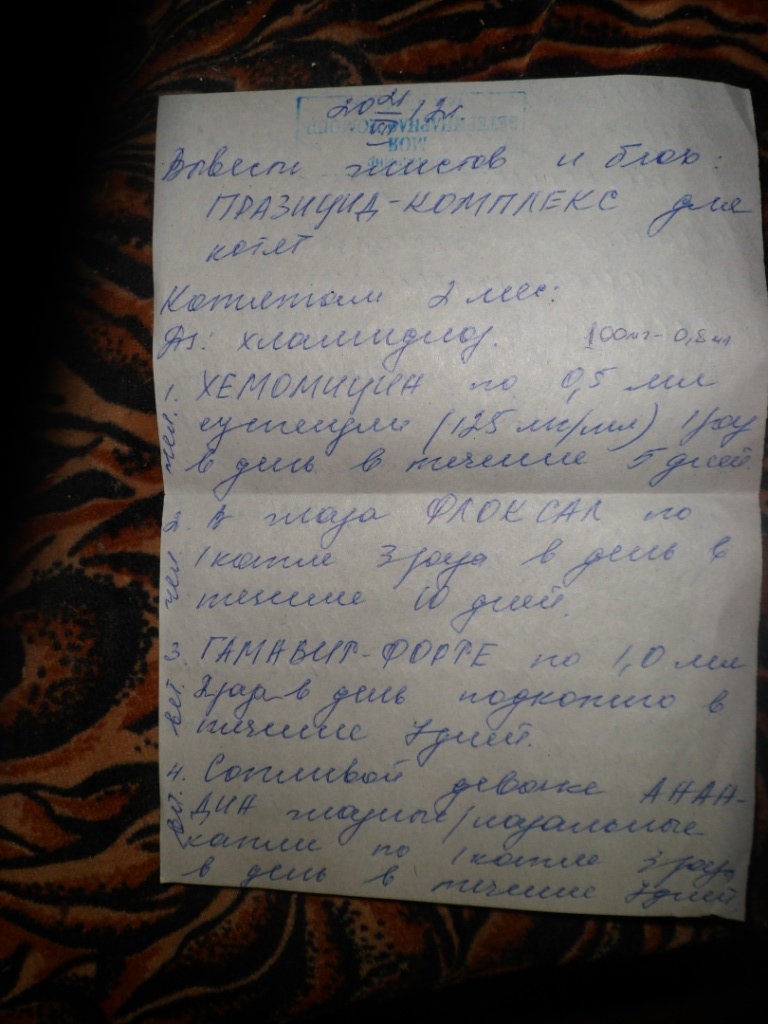 20 21/12
Вывести глистов и блох:
ПРАЗИЦИД-КОМПЛЕКС для
котят
Котятам 2 мес:
Ds: хламидиоз. 100мг - 0,8 мл
1. ХЕМОМИЦИН по 0,5 мл
чел. суспензии (125 мг/мл) 1 раз
в день в течение 5 дней
2. В глаза ФЛОКСАЛ по
чел 1 капле 3 раза в день в
течение 10 дней.
3. ГАМАВИТ-ФОРТЕ по 1,0 мл
вет. в день подкожно в
течение 7 дней.
4. Сопливой девочке АНАН-
вет. ДИН глазные/назальные
капли по 1 капле 3 раза
в день в течение 7 дней